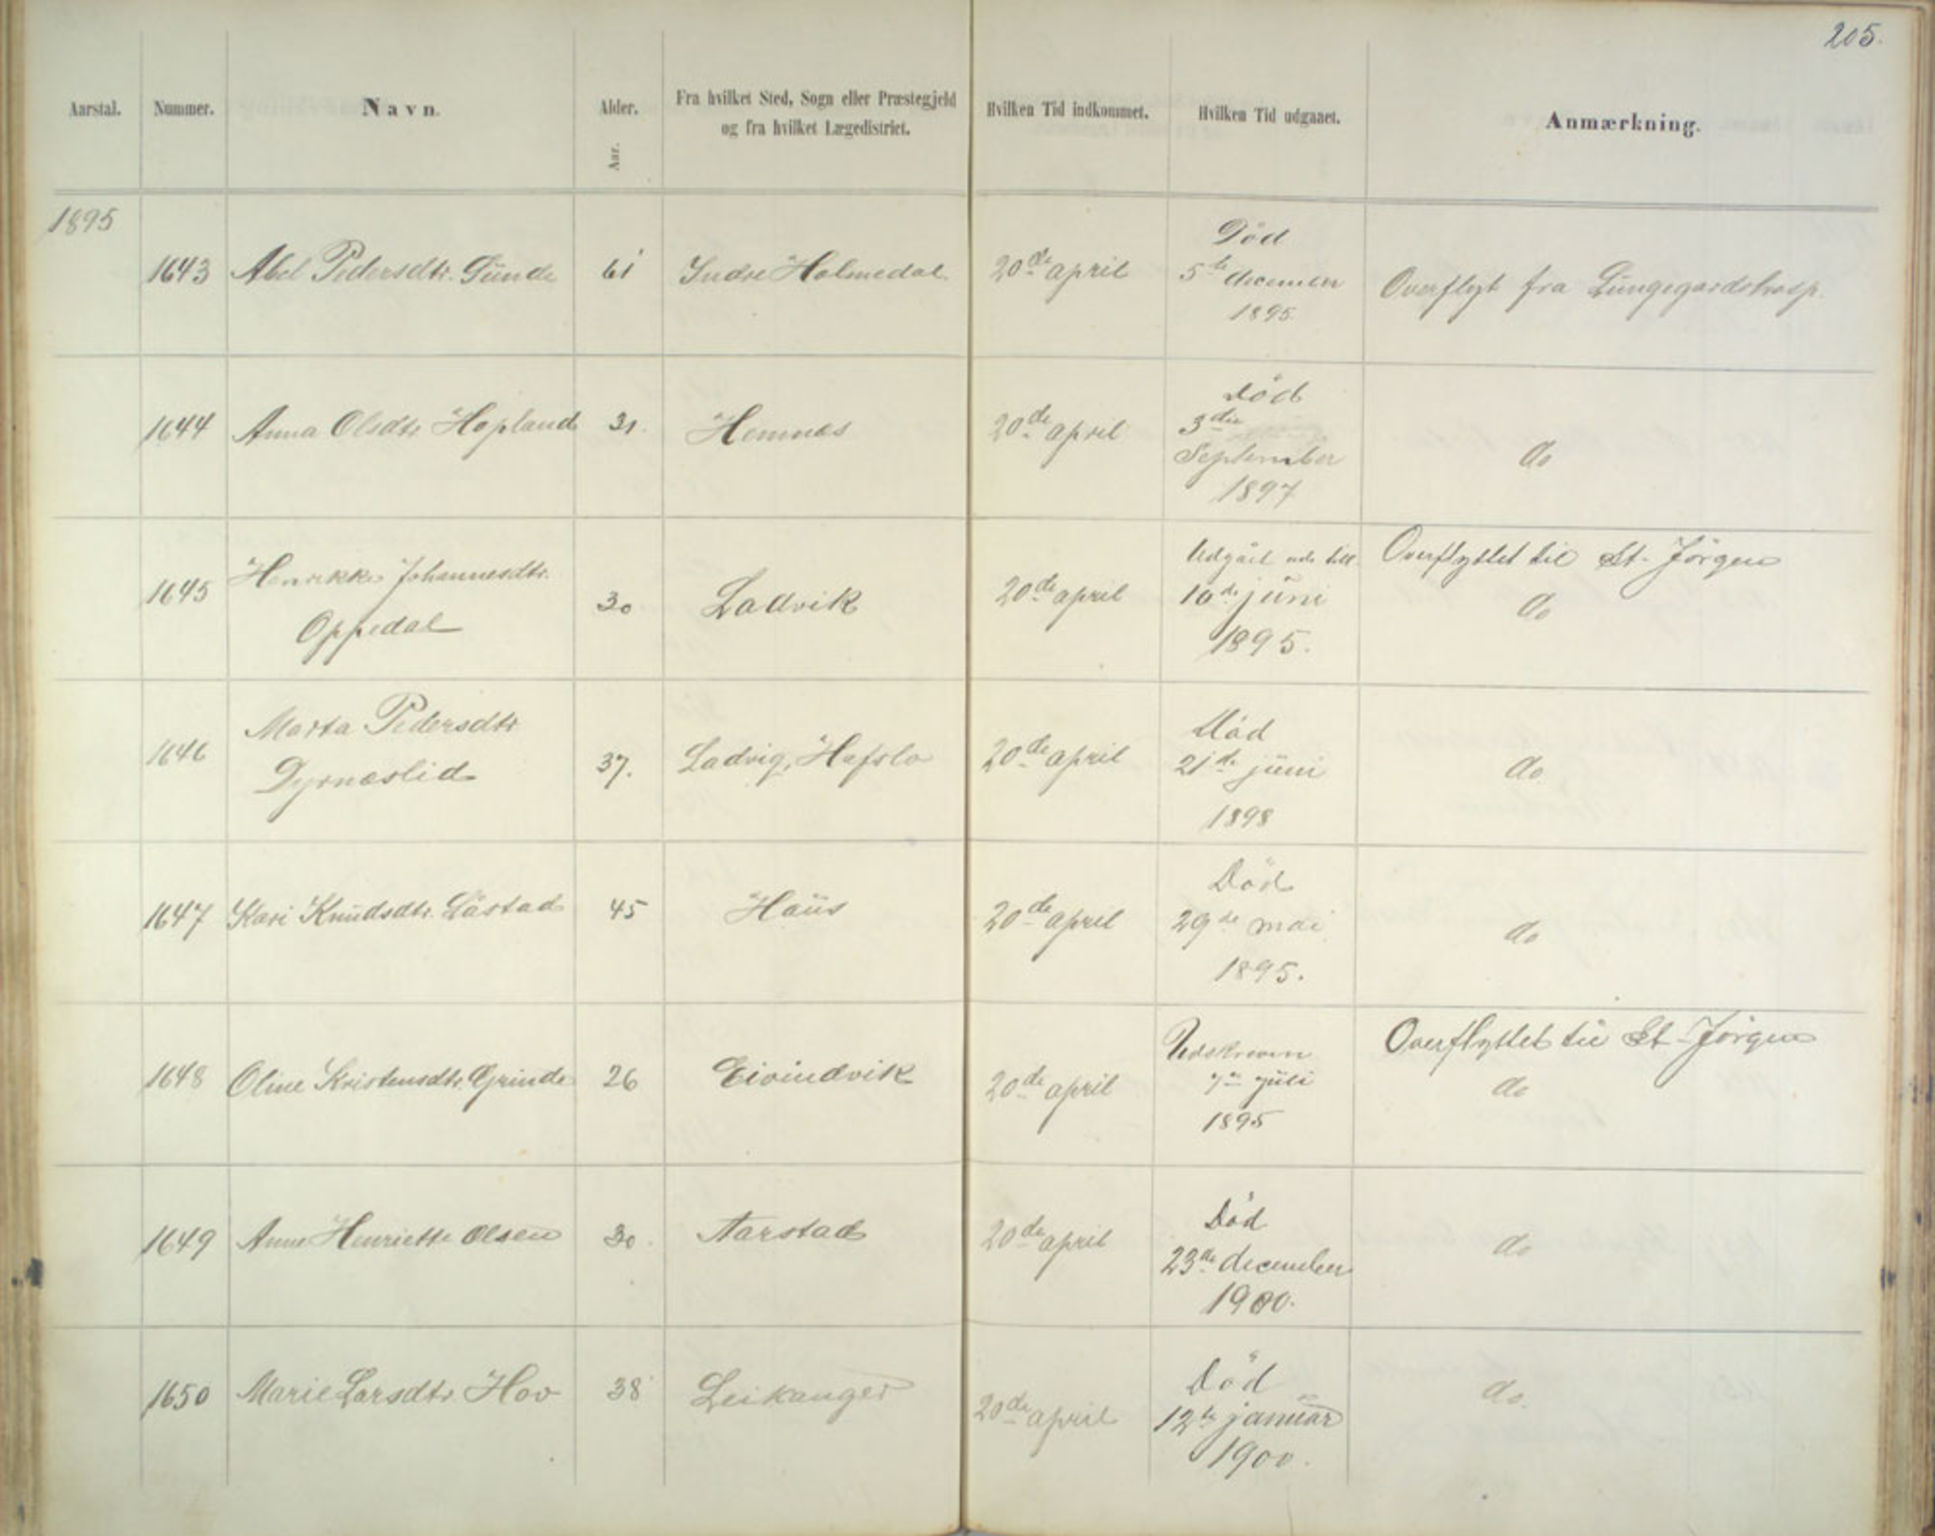 205.
Aarstal. Nummer. Navn. Alder. Aar. Fra hvilket Sted, Sogn eller Præstegjeld og fra hvilket Lægedistrict. Hvilken Tid indkommet. Hvilken Tid udgaaet. Anmærkning.
1895
1643 Abel Pedersdtr. Sünde 61 Indre Holmedal 20de april Død 5te 1895 Overflyt fra Lungegaardshosp.
1644 Anna Olsdtr Hopland 31. Hemnæs 20de april Død 3die September 1897 do
1645 Henrikke Johannesdtr. Oppedal 30 Ladvik 20de april Udgået 10de juni 1895. Overflyttet til St. Jörgen do
1646 Marta Pedersdtr Dyrnæslid 37. Ladvig, Hafslo 20de april Död 21de juni 1898 do
1647 Kari Knudsdtr. Låstad 45 Haus 20de april Död 29de mai 1895. do
1648 Oline Kristensdtr. Grinde 26 Eivindvik 20de april Udskreven 7de juli 1895 Overflyttet til St. Jörgen do
1649 Anne Henriette Olsen 30. Aarstad 20de april Död 23de december 1900. do
1650 Marie Larsdtr. Hov 38 Leikanger 20de april Död 12te januar 1900. do.